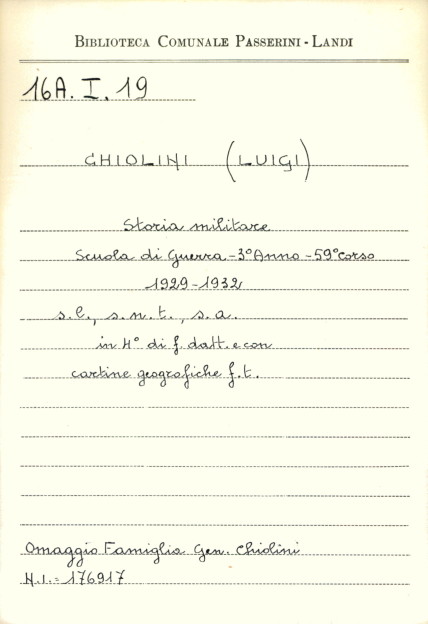 BIBLIOTECA COMUNALE PASSERINI - LANDI
16A. I. 19
GHIOLINI (LUIGI)
Storia militare
Scuola di Guerra - 3° Anno - 59° corso
1929 - 1932
s.l., s.n.t., s.a.
in 4° di f. datt. e con
cartine geografiche f.t.
Omaggio Famiglia Gen. Chiolini
N.I. = 176917